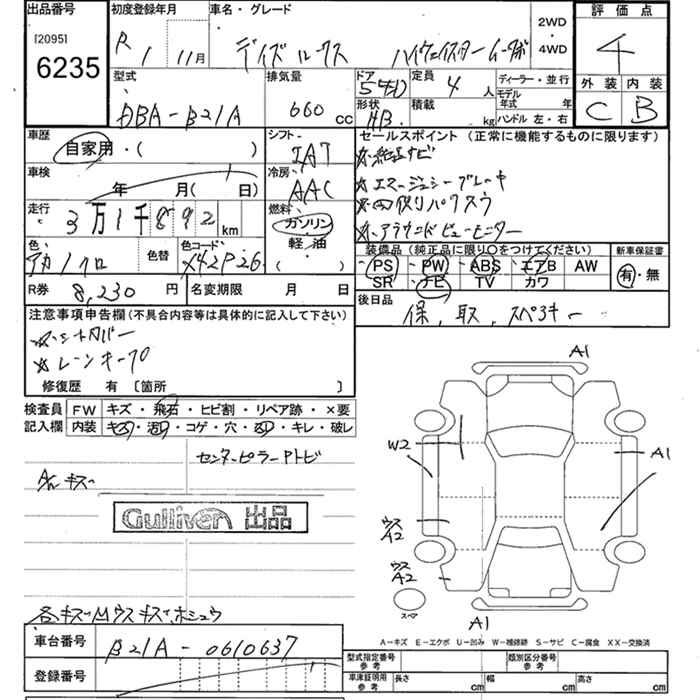 出品番号 初度登録年月 車名・グレード 2WD・4WD 評価点
[2095]
6235
R1 11月 デイズルークス ハイウェイスターGターボ 4
外装 内装
C B
型式 排気量 ドア 定員 ディーラー・並行
DBA-B21A 660cc 5 4人 モデル年式 年
形状 積載 kg ハンドル 左・右
HB
車歴 シフト セールスポイント(正常に機能するものに限ります)
自家用・( ) IAT
☆純正ナビ
車検 冷房
年 月( 日) AAC
☆エマージェンシーブレーキ
走行 燃料
3万1千892km ガソリン
軽・油
・( )
☆アラウンドビューモニター
色 色替 色コード 装備品(純正品に限り○をつけてください) 新車保証書
アカ/クロ X42P26
PS PW ABS エアB AW 有・無
SR ナビ TV カワ
R券 8,230円 名変期限 月 日
後日品
保,取,スペアキー
注意事項申告欄(不具合内容等は具体的に記入して下さい)
☆シートカバー
☆レーンキープ
修復歴 有 〔箇所 〕
検査員記入欄 FW キズ・飛石・ヒビ割・リペア跡・×要
内装 キズ・汚・コゲ・穴・スレ・キレ・破レ
センターピラーアトビ
A1
W2
A1
Gulliver 出品
ウスA2
ウスA2
スペア
A1
A-キズ E-エクボ U-凹み W-補修跡 S-サビ C-腐食 XX-交換済
車台番号 B21A-0610637
登録番号
型式指定番号 参考 類別区分番号 参考
車庫証明用 参考 長さ cm 幅 cm 高さ cm